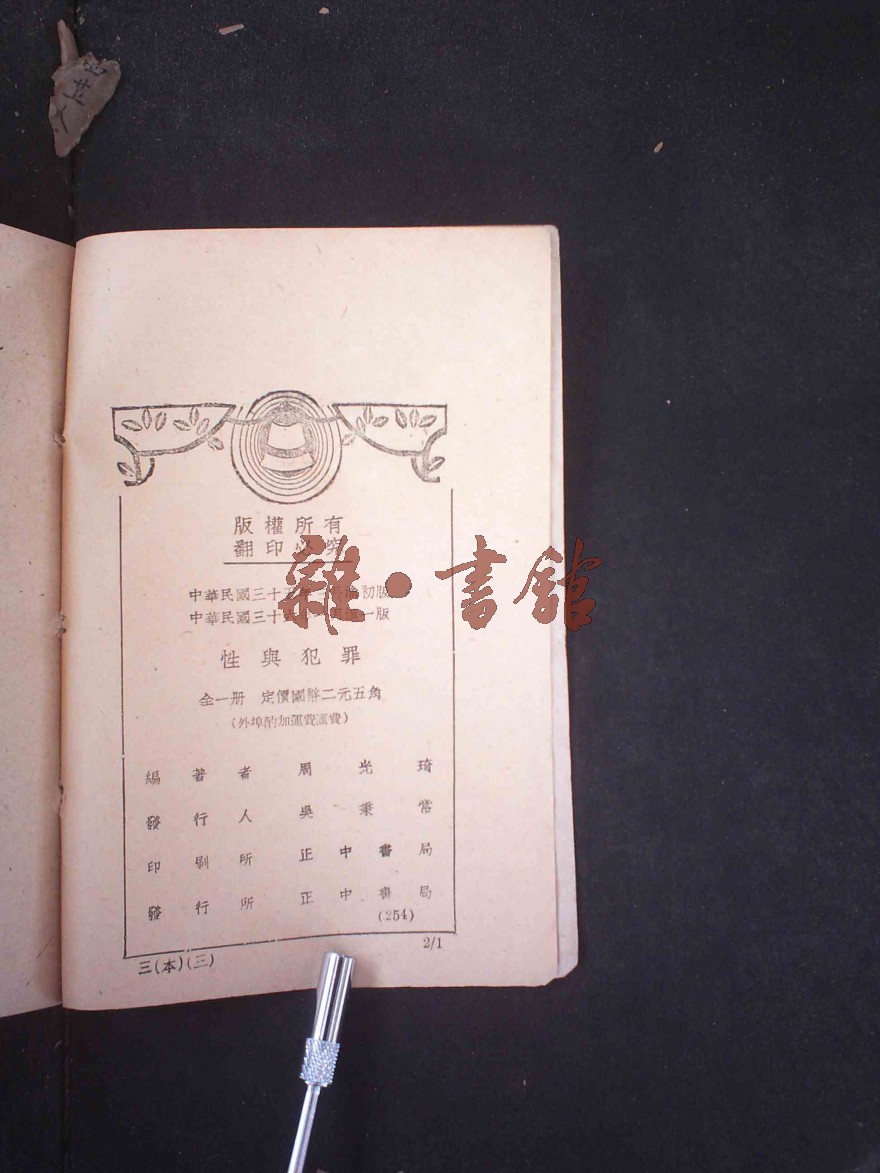 版權所有
翻印必究
中華民國三十五年 滬初版
中華民國三十 一版
性與犯罪
全一册 定價國幣二元五角
(外埠酌加運費滙費)
編著者 周光琦
發行人 吳秉常
印刷所 正中書局
發行所 正中書局
(254)
2/1
三(本)(三)
雜·書館